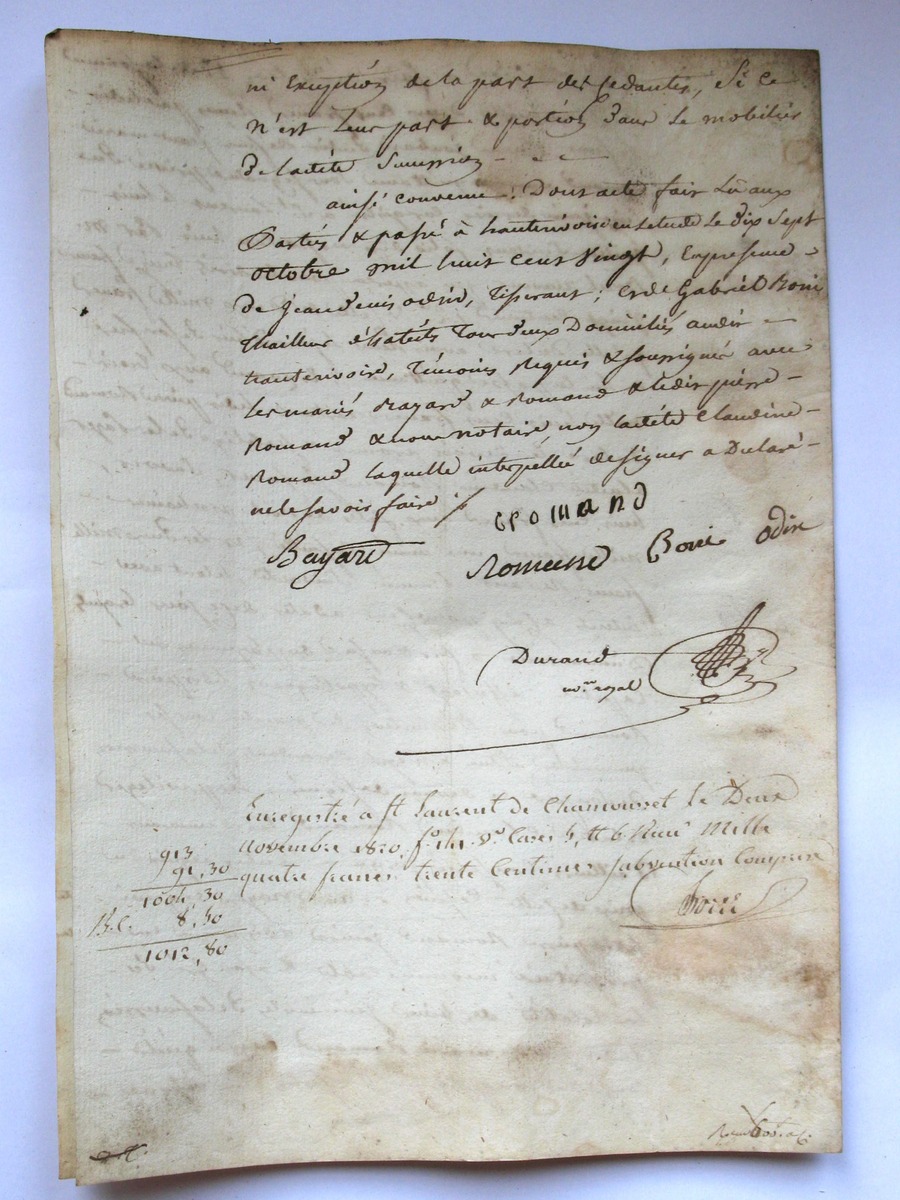 ni Exception de la part des Cedantes, Si ce
n'est leur part & portion dans le mobilier
de ladite Succession
ainsi convenu : Dont acte fait lû aux
Parties & passé à hauterivoire en letude le dix Sept
octobre mil huit cent Vingt, En presence
de Jean denis odin, tisserant ; et de Gabriel Boni
thailleur d'habits tous deux Domiciliés audit
hauterivoire, témoins Requis & soussignés avec
les mariés Bayard & Romand & ledit pierre
Romand & nous notaire, non ladite Claudine
Romand laquelle interpellée de signer a Déclaré
ne le savoir faire ./.
cromand
Bayard Romand Boni odin
Durand
no.re royal
Enregistré a St Laurent de Chamousset le Deux
novembre 1820, f.o 141 v.o Cases 5, et 6 Reçu Mille
quatre francs trente Centimes subvention Comprise
913
91,30
1004,30
8,50
1012,80